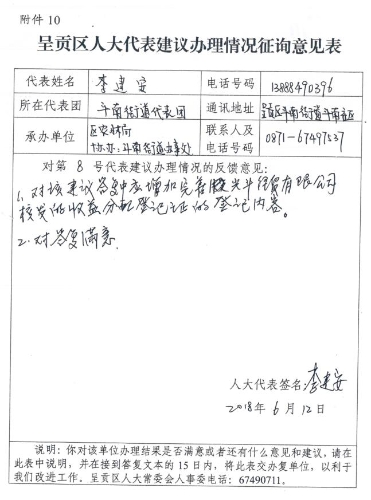 附件 10
呈贡区人大代表建议办理情况征询意见表
代表姓名 李建安 电话号码 13888490396
所在代表团 斗南街道代表团 通讯地址 呈贡区斗南街道斗南社区
承办单位 区农林局 协办:斗南街道办事处 联系人及电话号码 0871-67497537
对第 8 号代表建议办理情况的反馈意见:
1、对该建议答复中应增加完善 斗 有限公司
核发的收益分配登记证的登记内容。
2、对答复满意
人大代表签名:李建安
2018年 6月 12日
说明:你对该单位办理结果是否满意或者还有什么意见和建议,请在
此表中说明,并在接到答复文本的 15 日内,将此表交办复单位,以利于
我们改进工作。呈贡区人大常委会人事委电话:67490711.